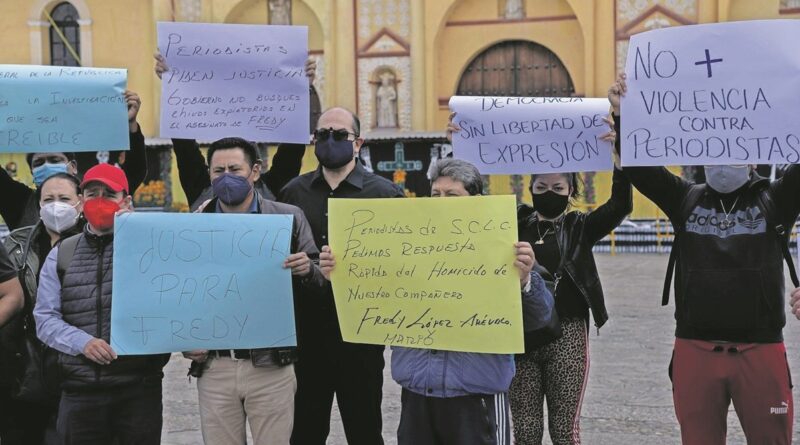 ERAL DE LA REPÚBLICA
A LA INVESTIGACIÓN
QUE SEA
CREIBLE
PERIODISTAS
PIDEN JUSTICIA
GOBIERNO NO BUSQUES
CHIVOS EXPIATORIOS EN
EL ASESINATO DE FREDY
DEMOCRACIA
SIN LIBERTAD DE
EXPRESIÓN
NO +
VIOLENCIA
CONTRA
PERIODISTAS
JUSTICIA
PARA
FREDY
PERIODISTAS DE S.C.L.C.
PEDIMOS RESPUESTA
RÁPIDA DEL HOMICIDIO DE
NUESTRO COMPAÑERO
FREDY LÓPEZ ARÉVALO,
MATEÓ
adidas
PUMA